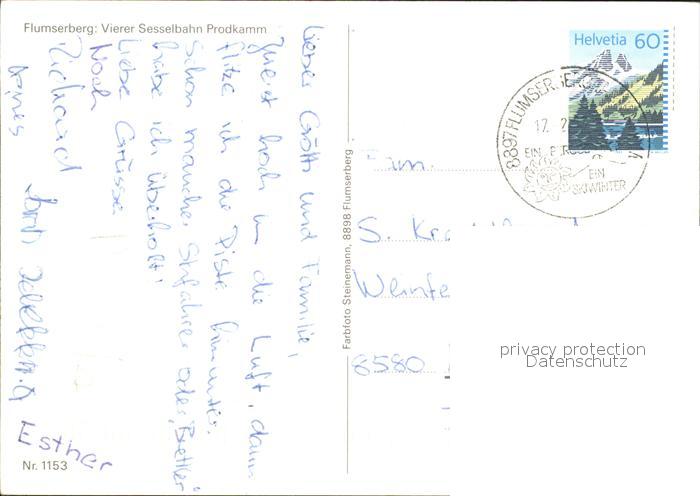 Flumserberg: Vierer Sesselbahn Prodkamm
Lieber Götti und Familie,
Zuerst hoch in die Luft, dann
flitze ich die Piste hinunter.
Schon mancher Skifahrer oder "Brettler"
habe ich überholt!
Liebe Grüsse
Noah
Richard
Esther
Nr. 1153
Farbfoto Steinemann, 8898 Flumserberg
Helvetia 60
8897 FLUMSERBERG
17. 2
EIN
SKIWINTER
Fam.
S. Kr
Weinfe
8580
privacy protection
Datenschutz